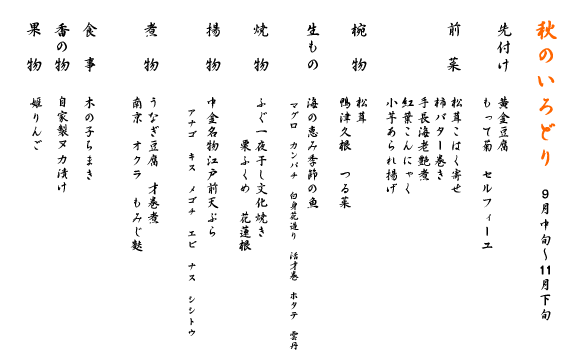 秋のいろどり　9月中旬～11月下旬
先付け　黄金豆腐
もって菊　セルフィーユ
前菜　松茸こはく寄せ
柿バター巻き
手長海老艶煮
紅葉こんにゃく
小芋あられ揚げ
椀物　松茸
鴨津久根　つる菜
生もの　海の恵み季節の魚
マグロ　カンパチ　白身花造り　活才巻　ホタテ　雲丹
焼物　ふぐ一夜干し文化焼き
栗ふくめ　花蓮根
揚物　中金名物江戸前天ぷら
アナゴ　キス　メゴチ　エビ　ナス　シシトウ
煮物　うなぎ豆腐　才巻煮
南京　オクラ　もみじ麩
食事　木の子ちまき
香の物　自家製ヌカ漬け
果物　姫りんご